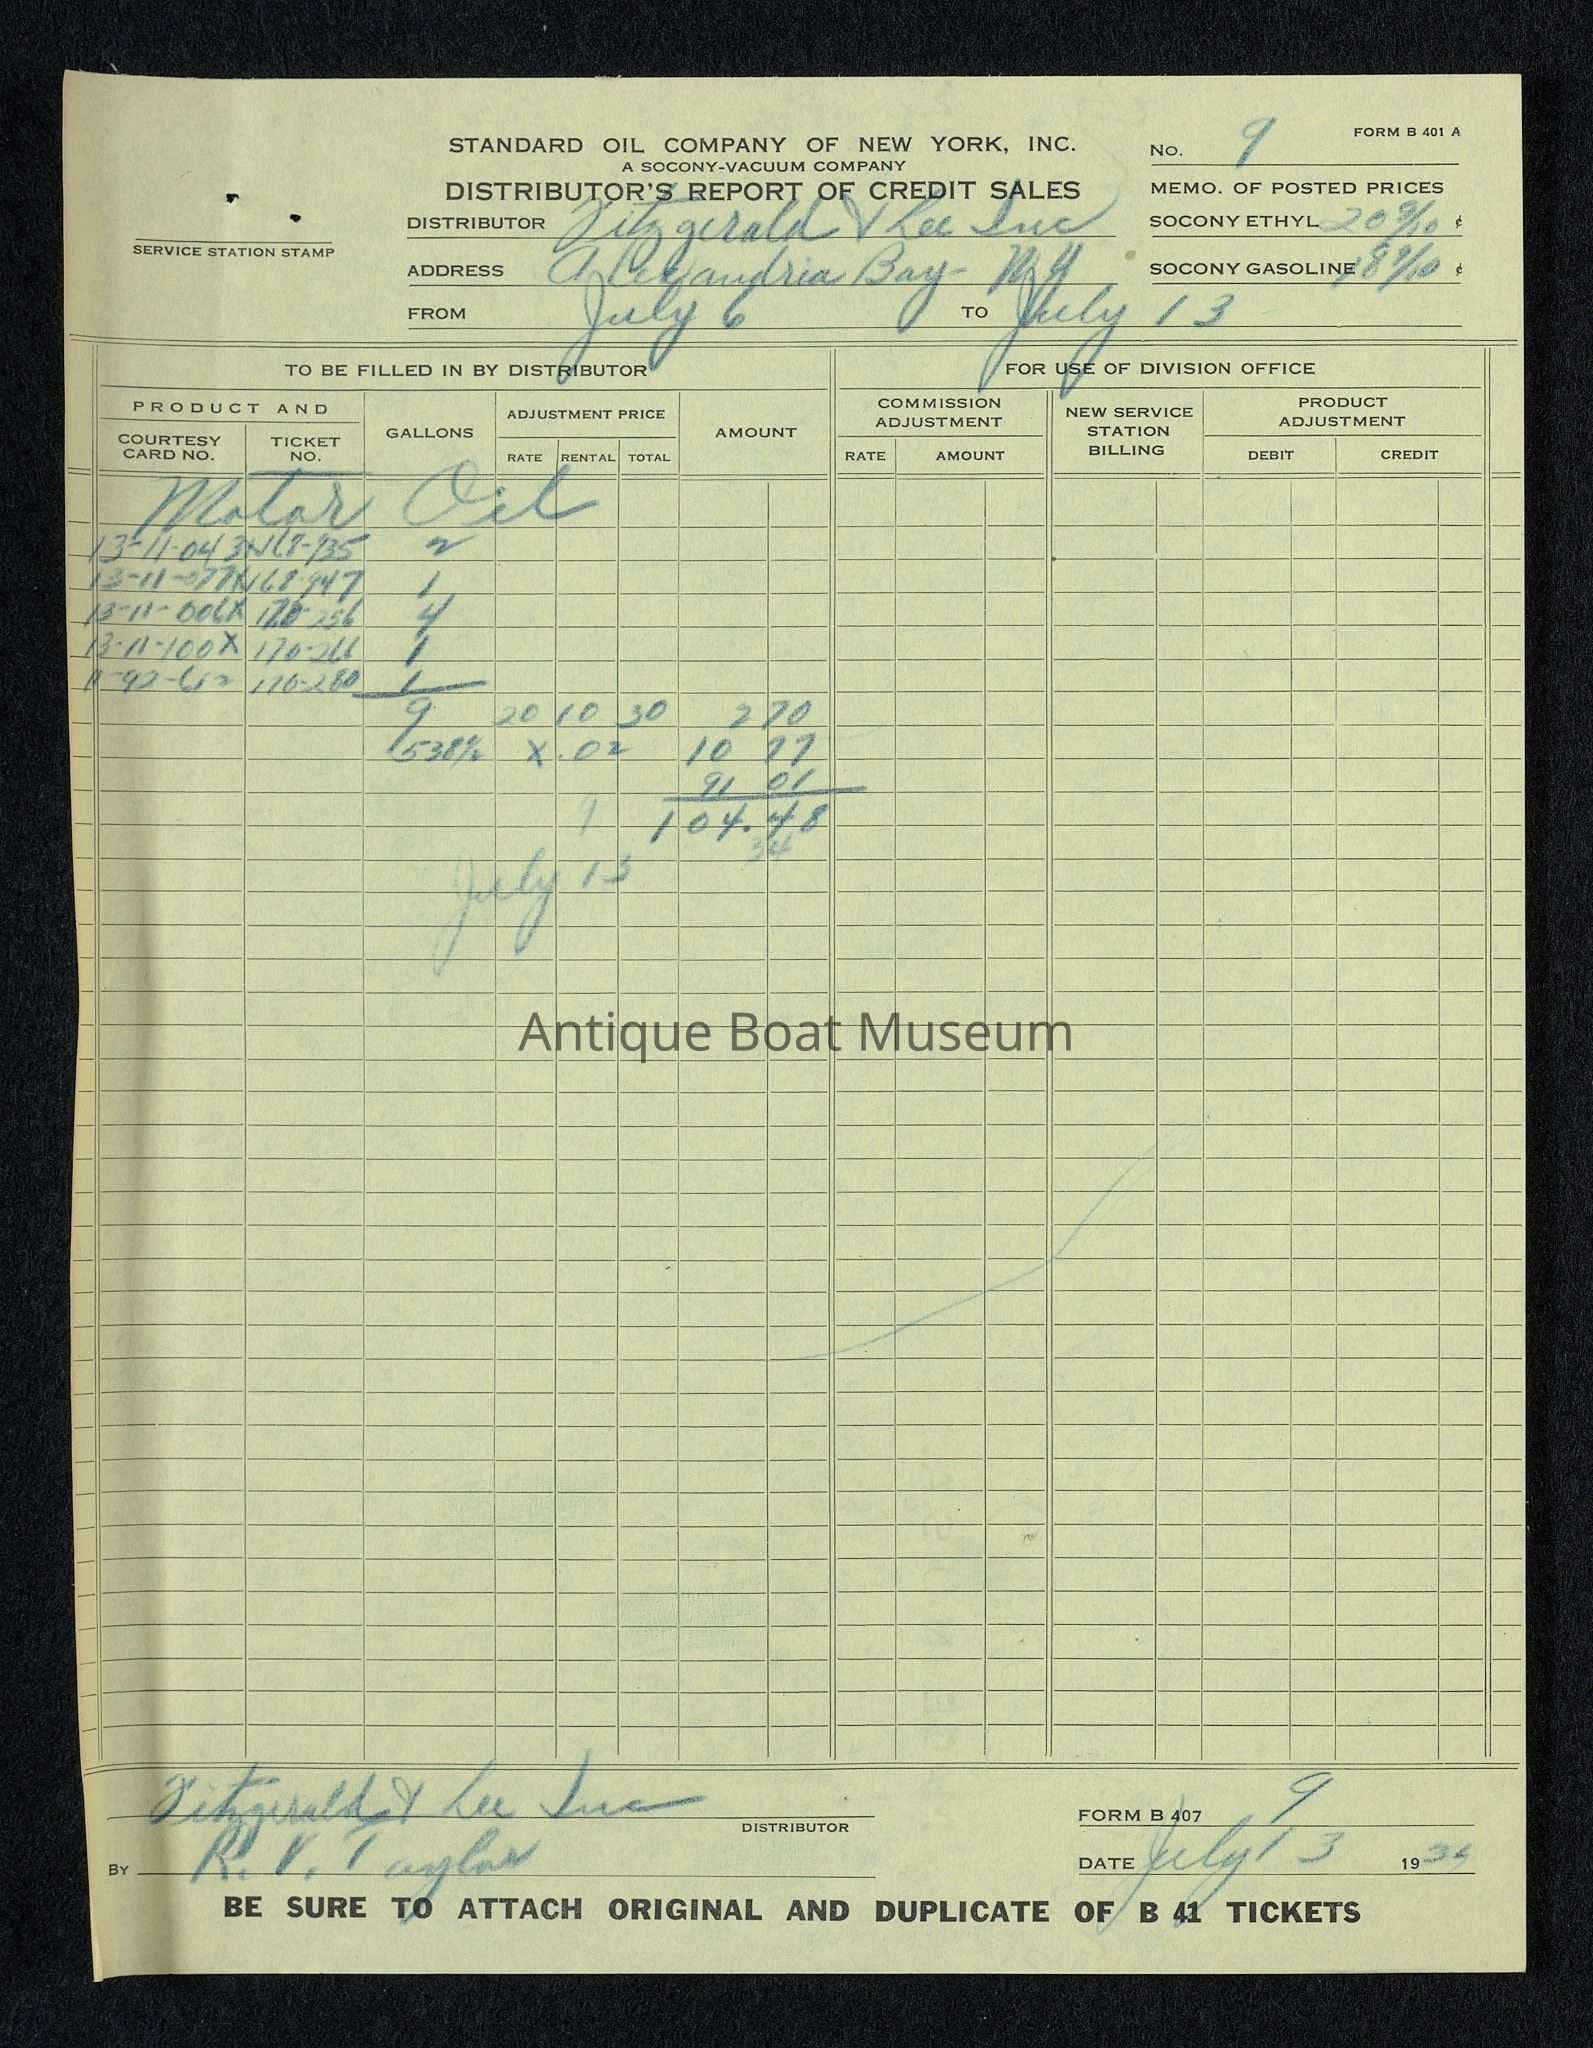 FORM B 401 A
STANDARD OIL COMPANY OF NEW YORK, INC.
No. 9
A SOCONY-VACUUM COMPANY
DISTRIBUTOR'S REPORT OF CREDIT SALES
MEMO. OF POSTED PRICES
DISTRIBUTOR Fitzgerald & Lee Inc
SOCONY ETHYL 20 9/10 ¢
SERVICE STATION STAMP
ADDRESS Alexandria Bay- N.Y
SOCONY GASOLINE 18 9/10 ¢
FROM July 6 TO July 13
TO BE FILLED IN BY DISTRIBUTOR FOR USE OF DIVISION OFFICE
PRODUCT AND
COURTESY CARD NO. TICKET NO. GALLONS ADJUSTMENT PRICE AMOUNT COMMISSION ADJUSTMENT NEW SERVICE STATION BILLING PRODUCT ADJUSTMENT
RATE RENTAL TOTAL RATE AMOUNT DEBIT CREDIT
Motor Oil
13-11-043 N68-935 2
13-11-077X 168-947 1
13-11-006X 170-256 4
13-11-100X 170-266 1
11-92-612 170-280 1
9 20 10 30 2 70
X .02 10 77
91 01
9 104.48
34
July 13
Antique Boat Museum
Fitzgerald & Lee Inc
DISTRIBUTOR
FORM B 407 9
BY R. V. Taylor
DATE July 13 1934
BE SURE TO ATTACH ORIGINAL AND DUPLICATE OF B 41 TICKETS